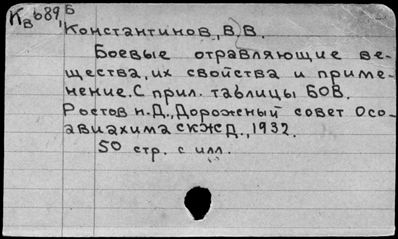 Кв689, Б
Константинов, В.В.
Боевые отравляющие ве-
щества, их свойства и приме-
нение. С прил. таблицы БОВ.
Ростов н.Д., Дорожный совет Осо-
авиахима СКЖД., 1932.
50 стр. с илл.